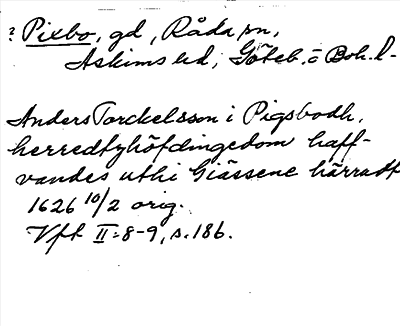 ? Pixbo, gd, Råda sn,
Askims hd, Göteb. o Boh. l.
Anders Torckelsson i Pigsbodh,
herredtzhöfdingedom haff-
vandes uthi Giässene härradt
1626 10/2 orig.
Vft II:8-9, s. 186.